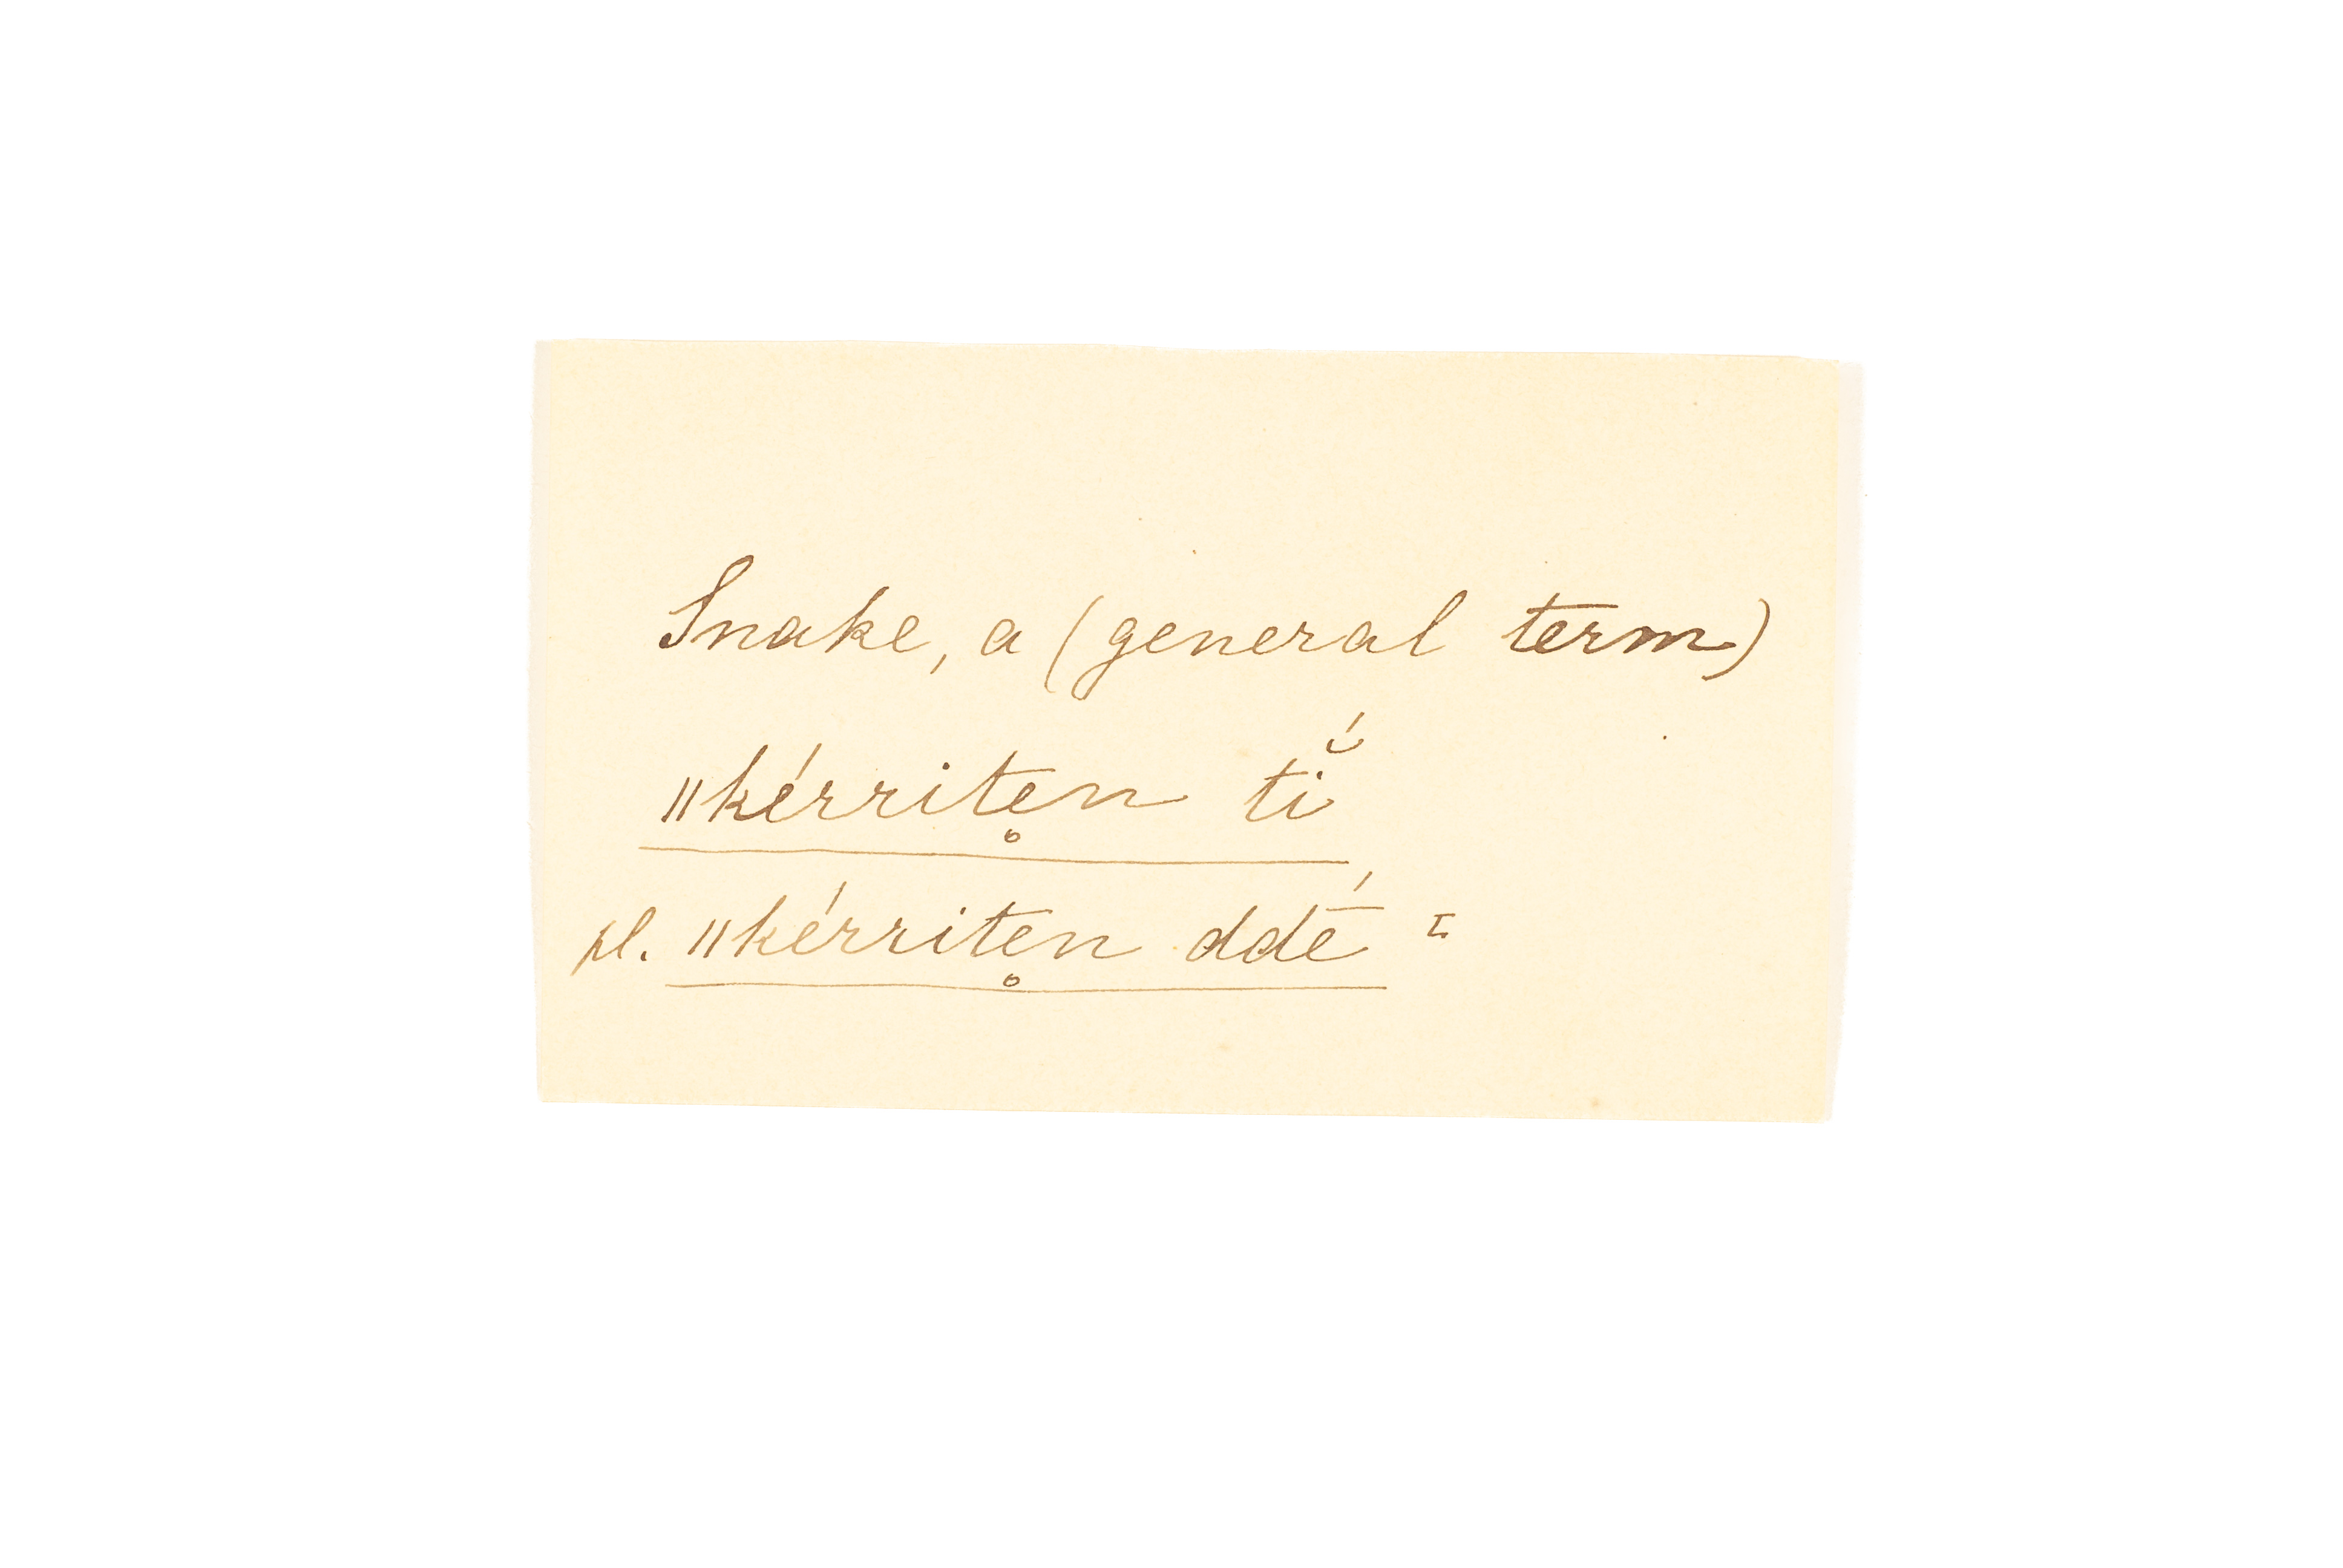 Snake, a (general term)
ǁkérritẹ̥n tĭ́
pl. ǁkérritẹ̥n ddḗ I.